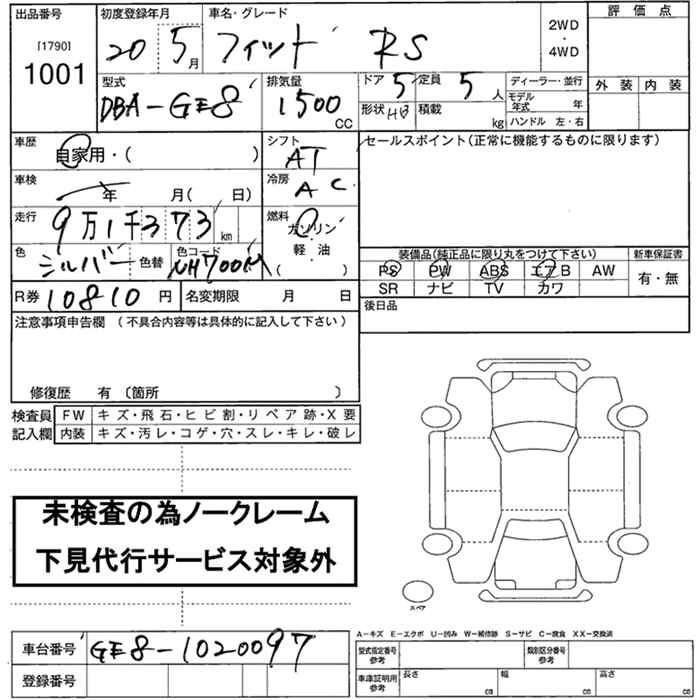 出品番号 初度登録年月 車名・グレード 評価点
[1790] 1001 20 5月 フィット RS 2WD・4WD
型式 排気量 ドア 5 定員 5人 ディーラー・並行 外装 内装
DBA-GE8 1500 CC 形状 HB 積載 kg モデル年式 年
ハンドル 左・右
車歴 自家用・( ) シフト AT セールスポイント(正常に機能するものに限ります)
車検 年 月( 日) 冷房 AC
走行 9万1千373 km 燃料 ガソリン・軽・油 ( )
色 シルバー 色替 色コード NH700M 装備品(純正品に限り丸をつけて下さい) 新車保証書
PS PW ABS エアB AW 有・無
SR ナビ TV カワ
R券 10810円 名変期限 月 日 後日品
注意事項申告欄 (不具合内容等は具体的に記入して下さい)
修復歴 有 〔箇所 〕
検査員 FW キズ・飛石・ヒビ割・リペア跡・X要
記入欄 内装 キズ・汚レ・コゲ・穴・スレ・キレ・破レ
未検査の為ノークレーム
下見代行サービス対象外
スペア
A-キズ E-エクボ U-凹み W-補修跡 S-サビ C-腐食 XX-交換済
車台番号 GE8-1020097 型式指定番号 参考 類別区分番号 参考
登録番号 車庫証明用 参考 長さ cm 幅 cm 高さ cm